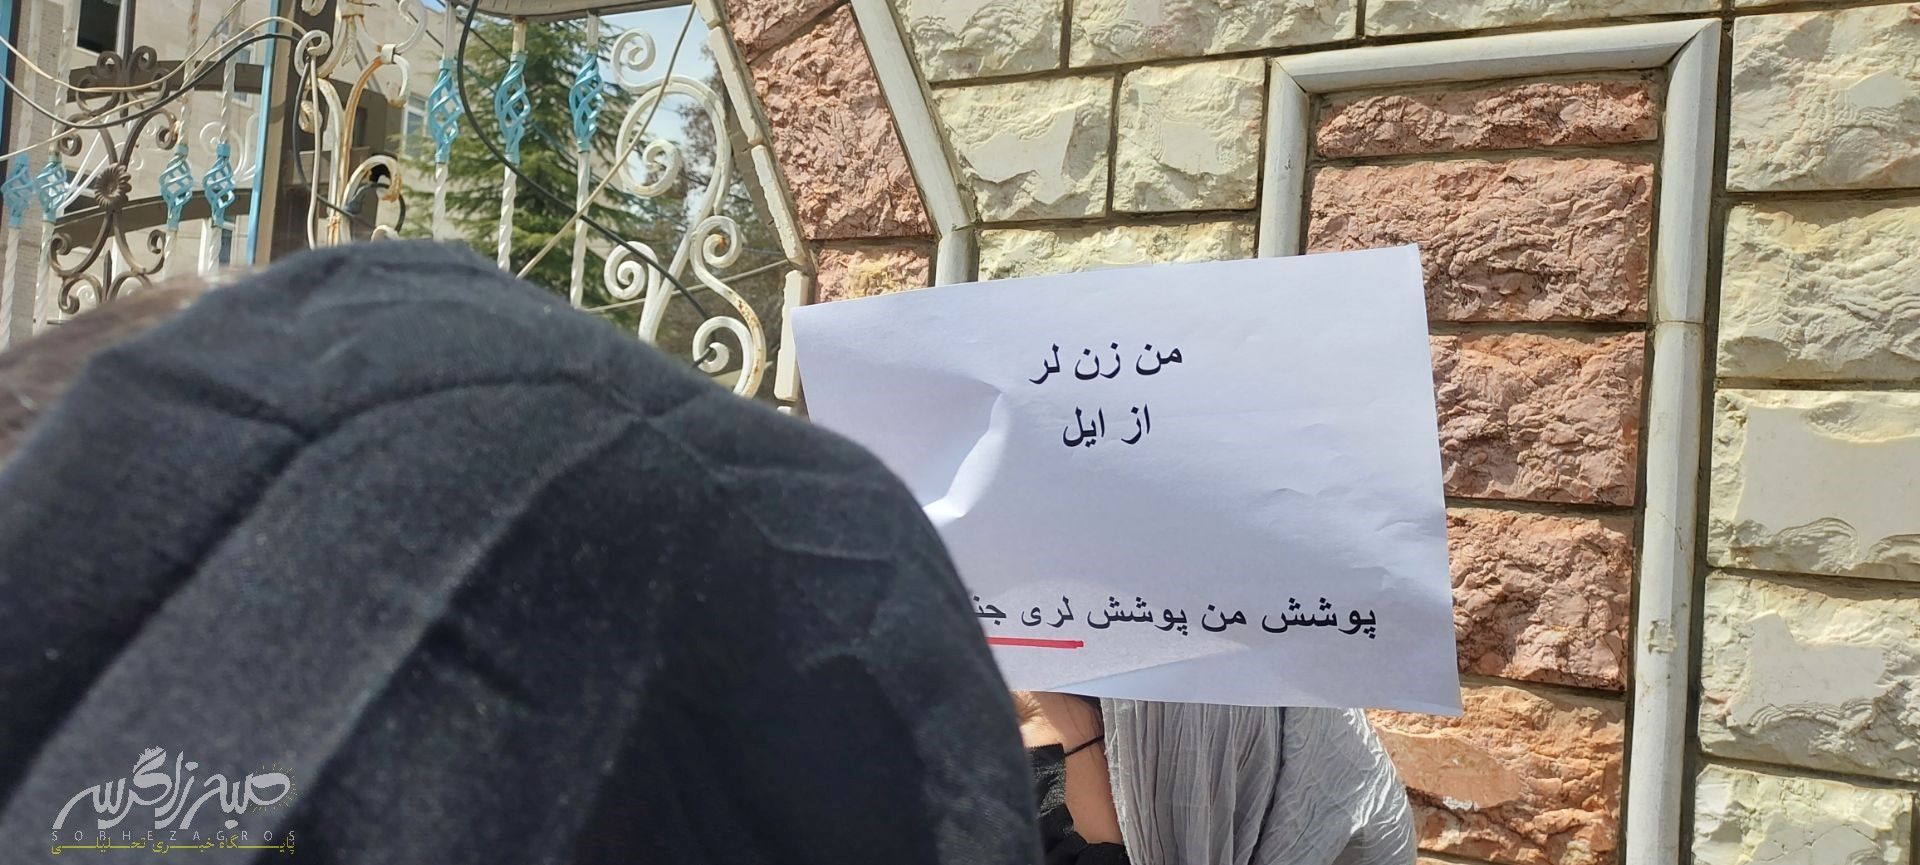 من زن لر
از ایل
پوشش من پوشش لری
صبح زاگرس
SOBHEZAGROS
پایگاه خبری تحلیلی